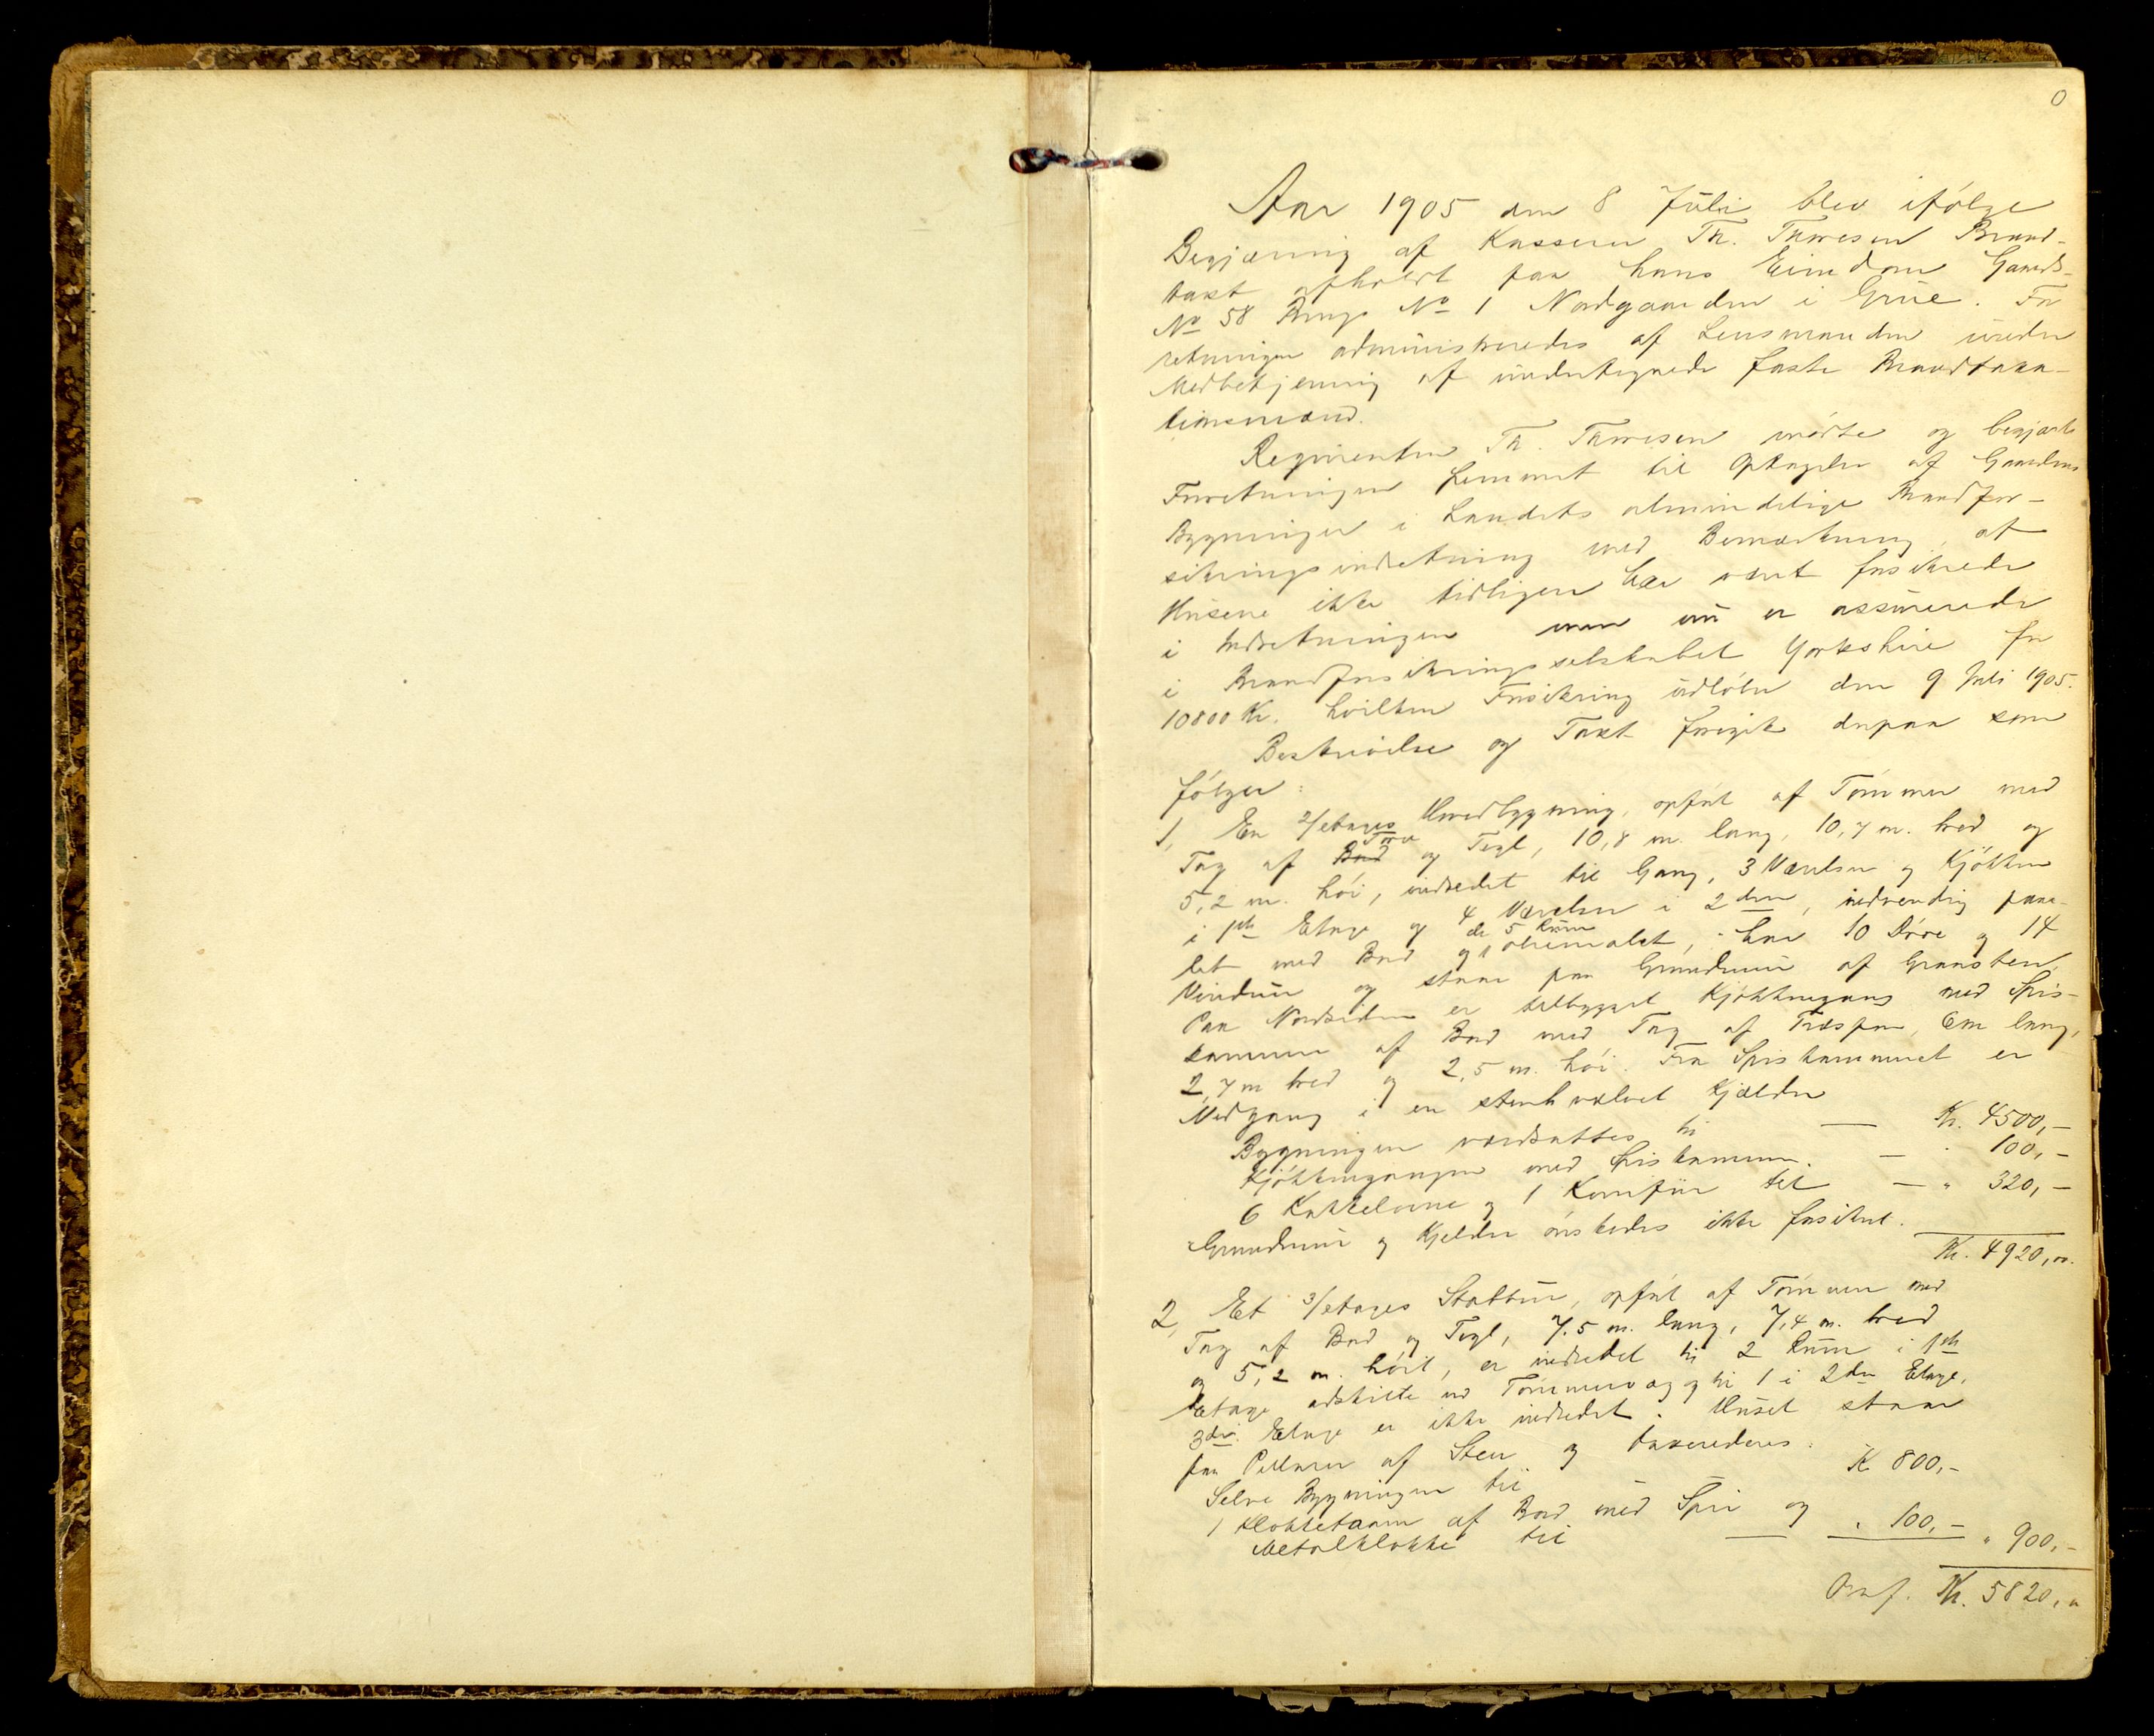 0
Aar 1905 den 8 Juli blev ifølge
Begjæring af Kasserer Th. Thoresen Brand-
takst afholdt paa hans Eiendom Gaards-
No 58 Brugs No 1 Nordgaarden i Grue. For
retningen administreredes af Lensmanden under
Medbetjening af undertegnede faste Brandtaxa-
tionsmænd.
Reqvirenten Th. Thoresen mødte og begjærte
Forretningen fremmet til Optagelse af Gaardens
Bygninger i Landets almindelige Brandfor-
sikringsindretning med Bemærkning, at
Husene ikke tidligere har været forsikrede
i Indretningen men nu er assurerede
i Brandforsikringsselskabet Yorkshire for
10800 Kr. hvilken Forsikring udløber den 9 Juli 1905.
Beskrivelse og Taxt foregik derpaa som
følger:
1, En 2/etages Hovedbygning, opført af Tømmer med
Tag af Bord Torv og Tegl, 10,8 m. lang, 10,7 m. bred og
5,2 m. høi, indredet til Gang, 3 Værelser og Kjøkken
i 1ste Etage og 4 Værelser i 2den, indvendig pane-
let med Bord og de 5 Rum oliemalet, har 10 Døre og 14
Vinduer og staar paa Grundmur af Graasten.
Paa Nordsiden er tilbygget Kjøkkengang med Spis-
kammer af Bord med Tag af Træspon, 6 m lang,
2,7 m bred og 2,5 m. høi. Fra Spiskammeret er
Nedgang i en stenhvælvet Kjælder
Bygningen værdsattes til — Kr. 4500,-
Kjøkkengangen med Spiskammer. — " 100,-
6 Kakkelovne og 1 Komfur til — " 320,-
Grundmur og Kjelder ønskedes ikke forsikret.
Kr. 4920,00.
2, Et 3/etages Stabbur, opført af Tømmer med
Tag af Bord og Tegl, 7,5 m. lang, 7,4 m. bred
og 5,2 m. høit, er indredet til 2 Rum i 1ste
Etage adskilte ved Tømmervæg og til 1 i 2den Etage,
3die Etage er ikke indredet. Huset staar
paa Pillarer af Sten og taxeredes:
Selve Bygningen til K 800,-
1 Klokketaarn af Bord med Spir og
Metalklokke til — " 100,- " 900,-
Kr. 5820,